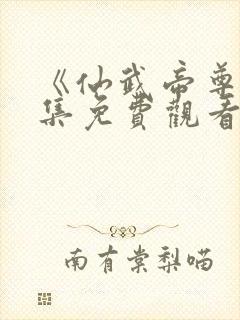 《仙武帝尊
集免費觀看
南有棠梨喵